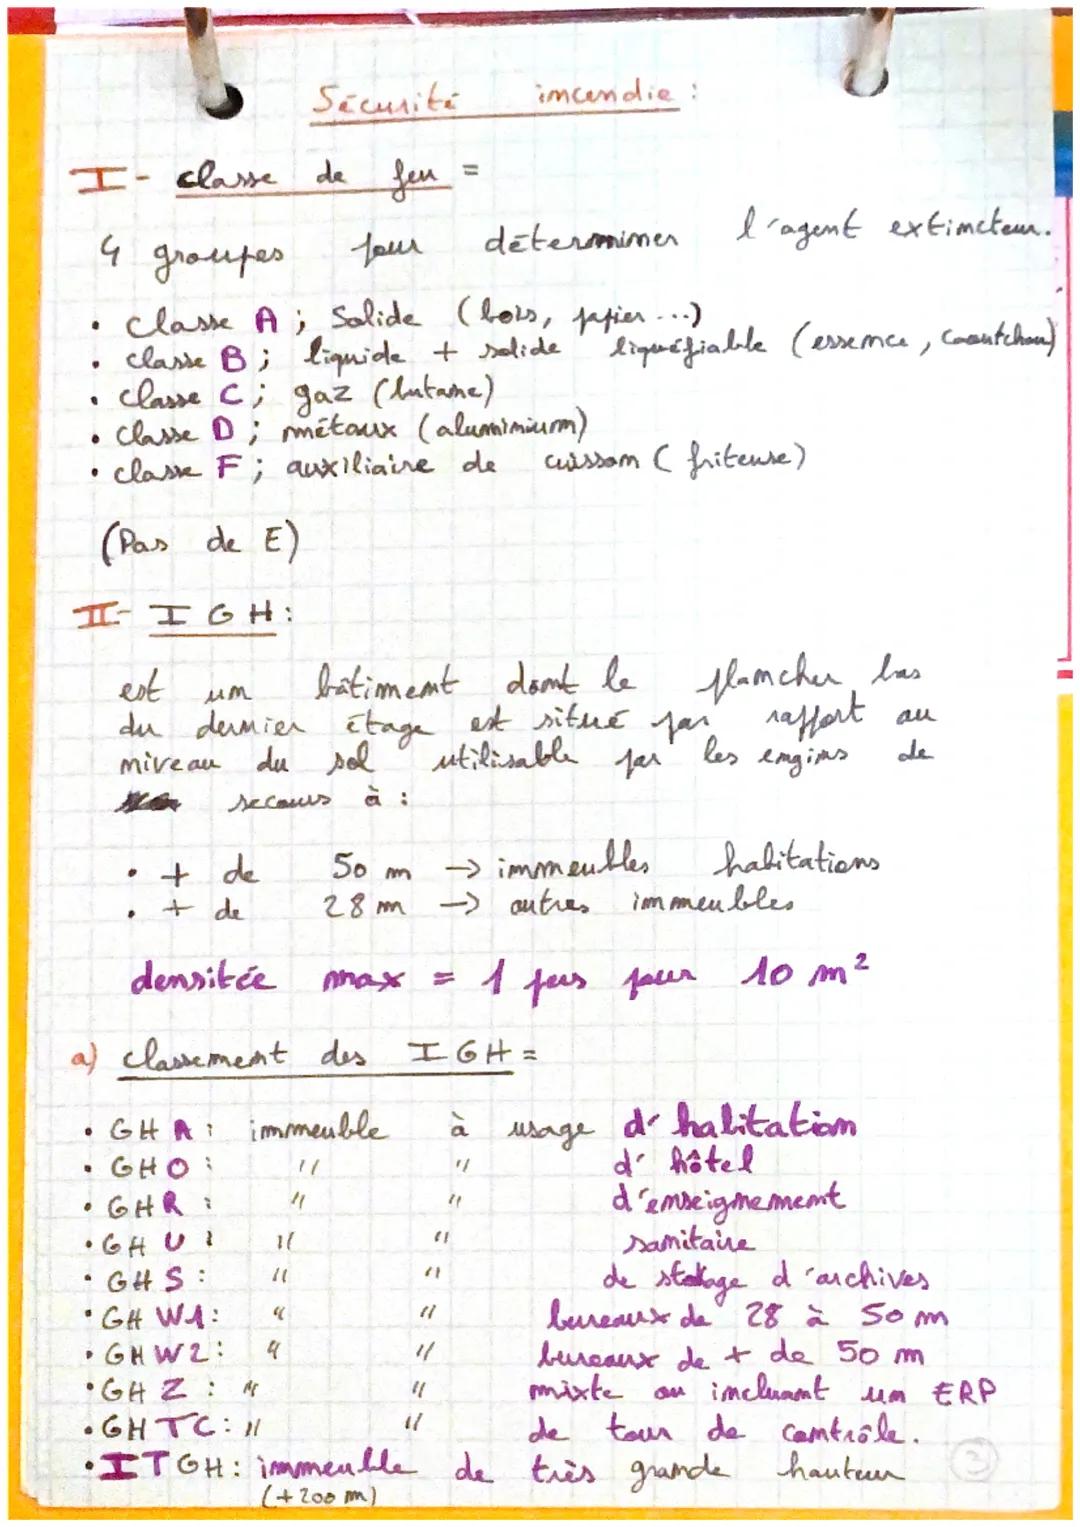 Sécurité incendie :
I- classe de feu =
4 groupes pour déterminer l'agent extincteur.
• classe A ; Solide (bois, papier ...)
• classe B ; liquide + solide liquéfiable (essence, Caoutchou)
• classe C ; gaz (butane)
• classe D ; métaux (aluminium)
• classe F ; auxiliaire de cuisson (friteuse)
(Pas de E)
II- IGH :
est un bâtiment dont le plancher bas
du dernier étage est situé par rapport au
niveau du sol utilisable par les engins de
secours à :
• + de 50 m → immeubles habitations
• + de 28 m → autres immeubles
densitée max = 1 pers pour 10 m²
a) classement des IGH =
• GH A : immeuble à usage d'habitation
• GH O : " " d'hôtel
• GH R : " " d'enseignement
• GH U : " " sanitaire
• GH S : " " de stokage d'archives
• GH W1 : " " bureaux de 28 à 50 m
• GH W2 : " " bureaux de + de 50 m
• GH Z : " " mixte ou incluant un ERP
• GH TC : " " de tour de contrôle.
• ITGH : immeuble de très grande hauteur
(+ 200 m)
3